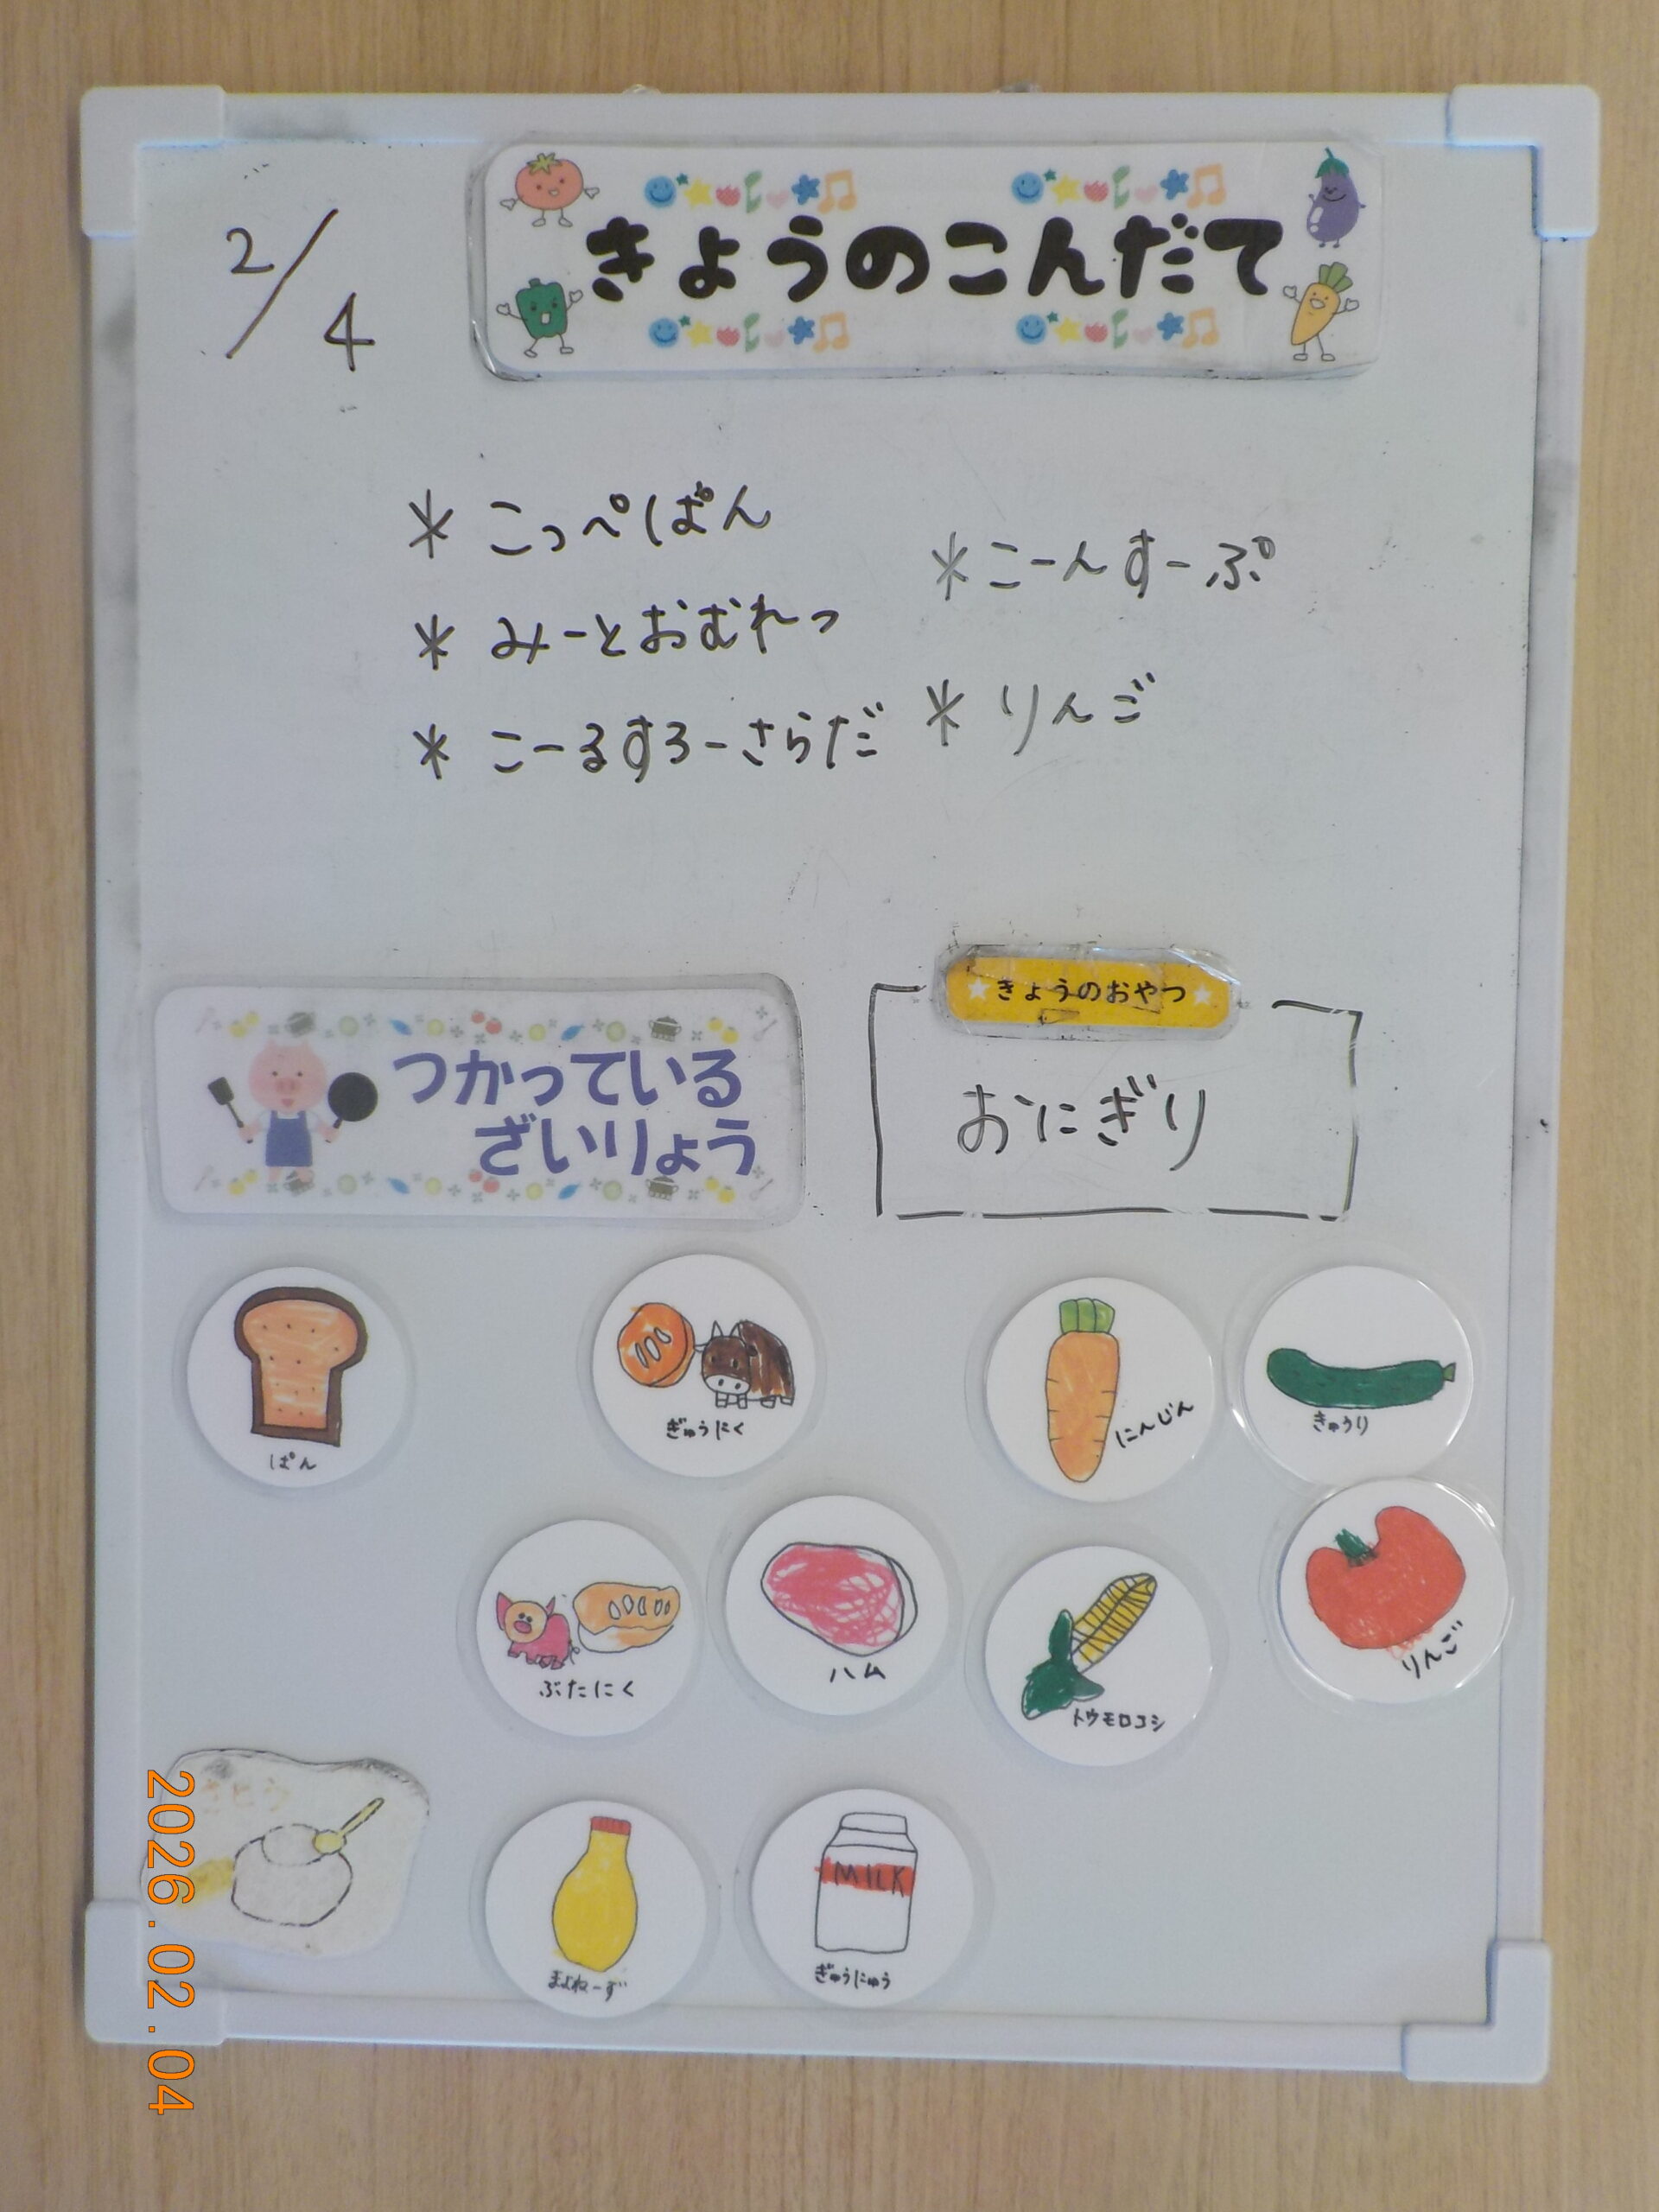 2/4
きょうのこんだて
* こっぺぱん
* みーとおむれつ
* こーるすろーさらだ
* こーんすーぷ
* りんご
きょうのおやつ
おにぎり
つかっている
ざいりょう
ぱん
ぎゅうにく
にんじん
きゅうり
ぶたにく
ハム
トウモロコシ
りんご
さとう
まよねーず
MILK
ぎゅうにゅう
2026.02.04